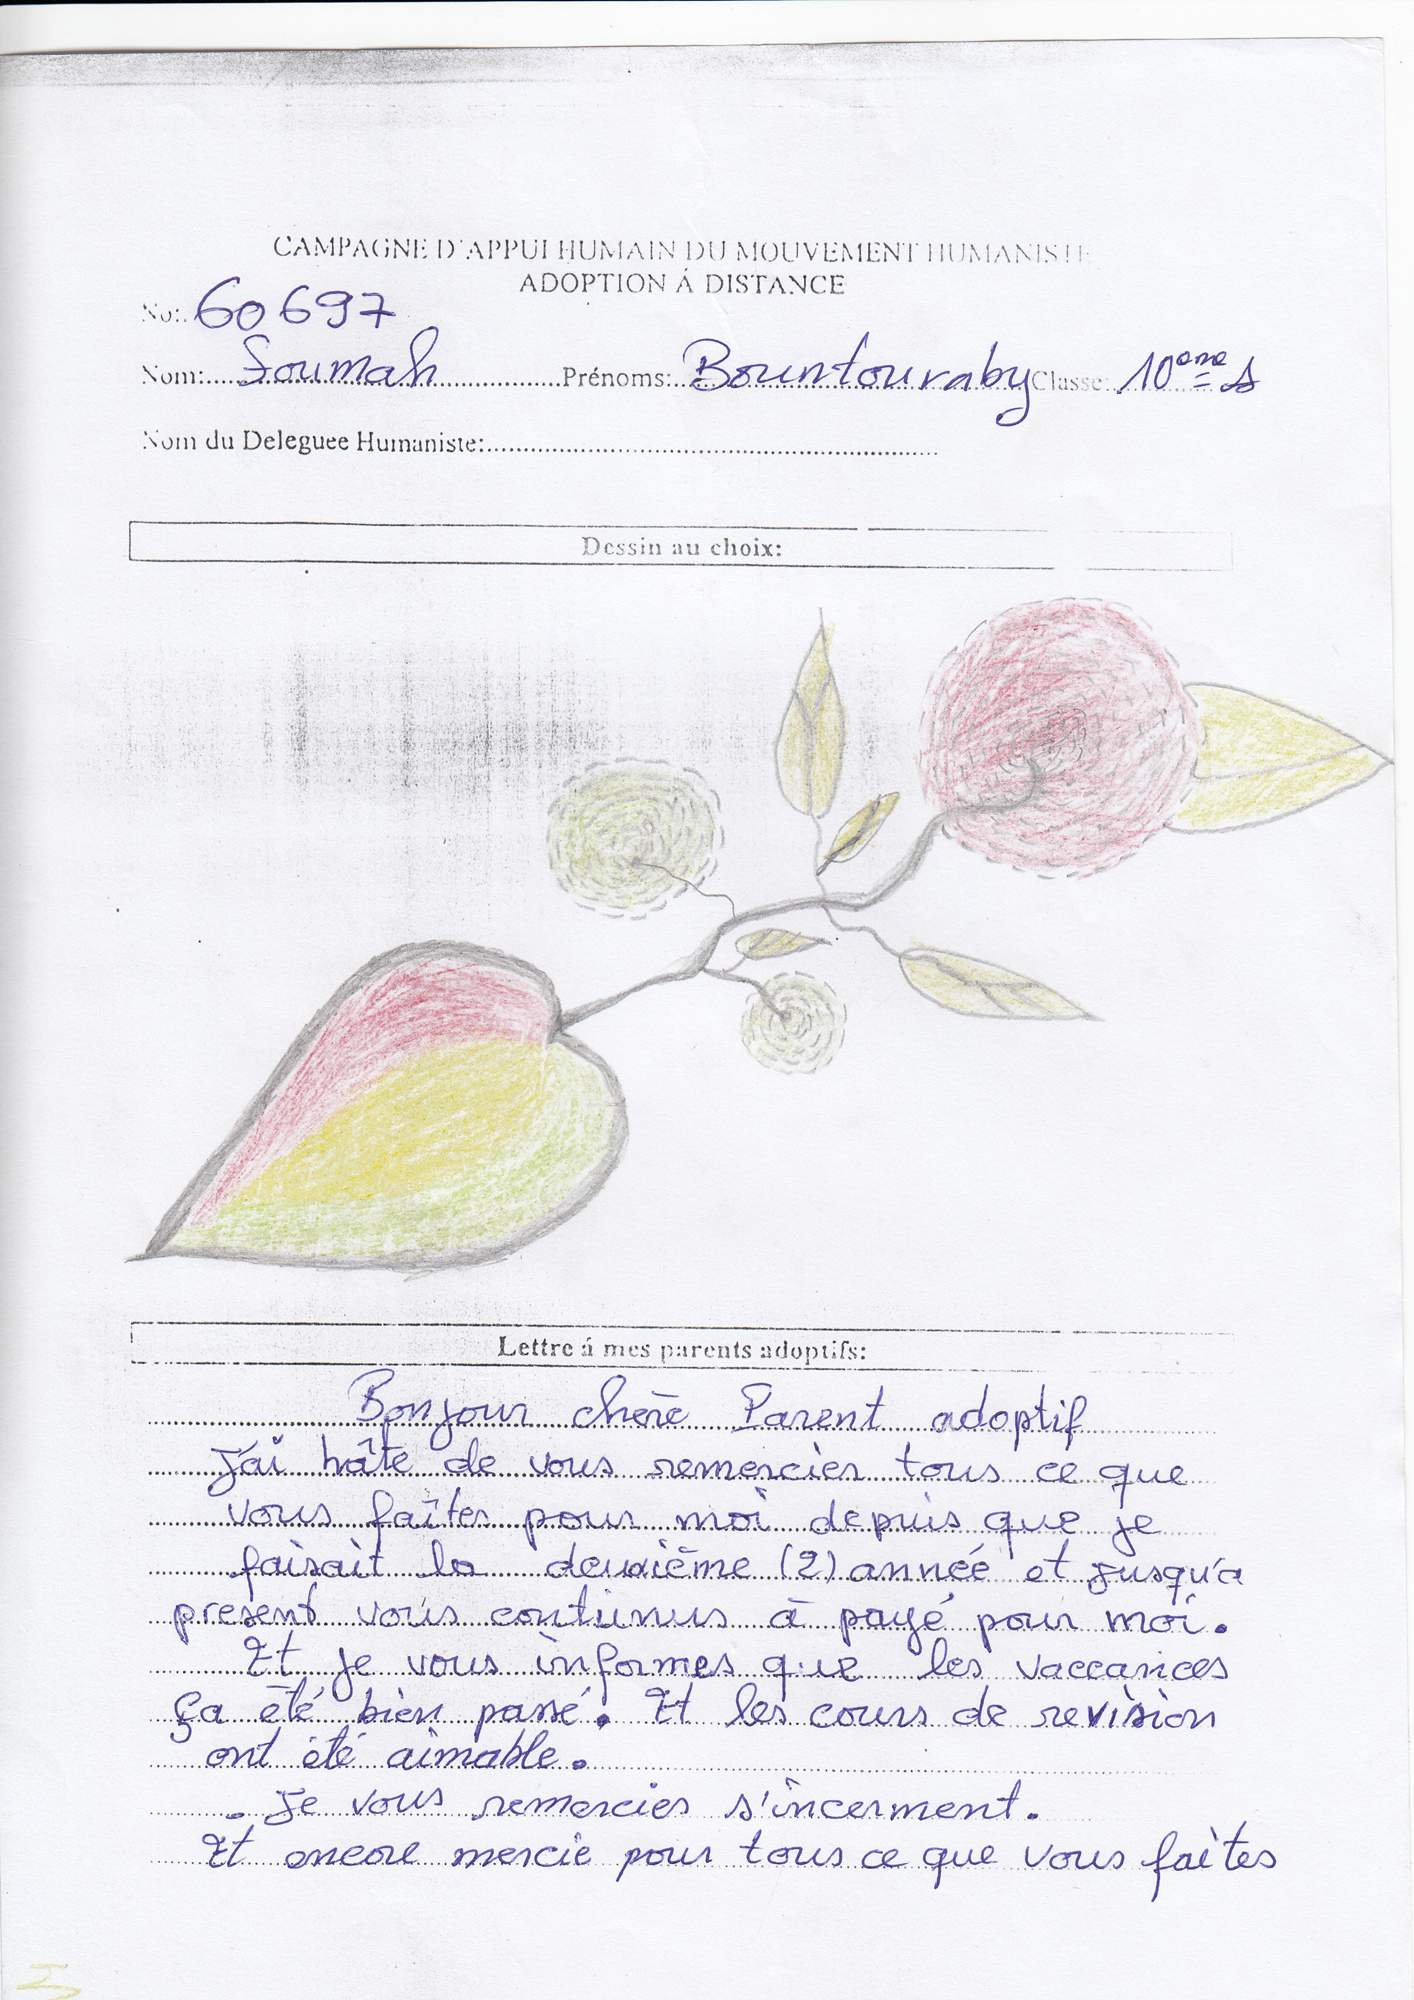 CAMPAGNE D'APPUI HUMAIN DU MOUVEMENT HUMANISTE
ADOPTION Á DISTANCE
No: 60697
Nom: Soumah Prénoms: Bountouraby Classe: 10ème S
Nom du Deleguee Humaniste:
Dessin au choix:
Lettre á mes parents adoptifs:
Bonjour chère Parent adoptif
J'ai hâte de vous remercier tous ce que
vous faîtes pour moi depuis que je
faisait la deuxième (2) année et jusqu'a
present vous continus à payé pour moi.
Et je vous informes que les vaccances
ça été bien passé. Et les cours de revision
ont été aimable.
. Je vous remercies s'incerment.
Et encore mercie pour tous ce que vous faites